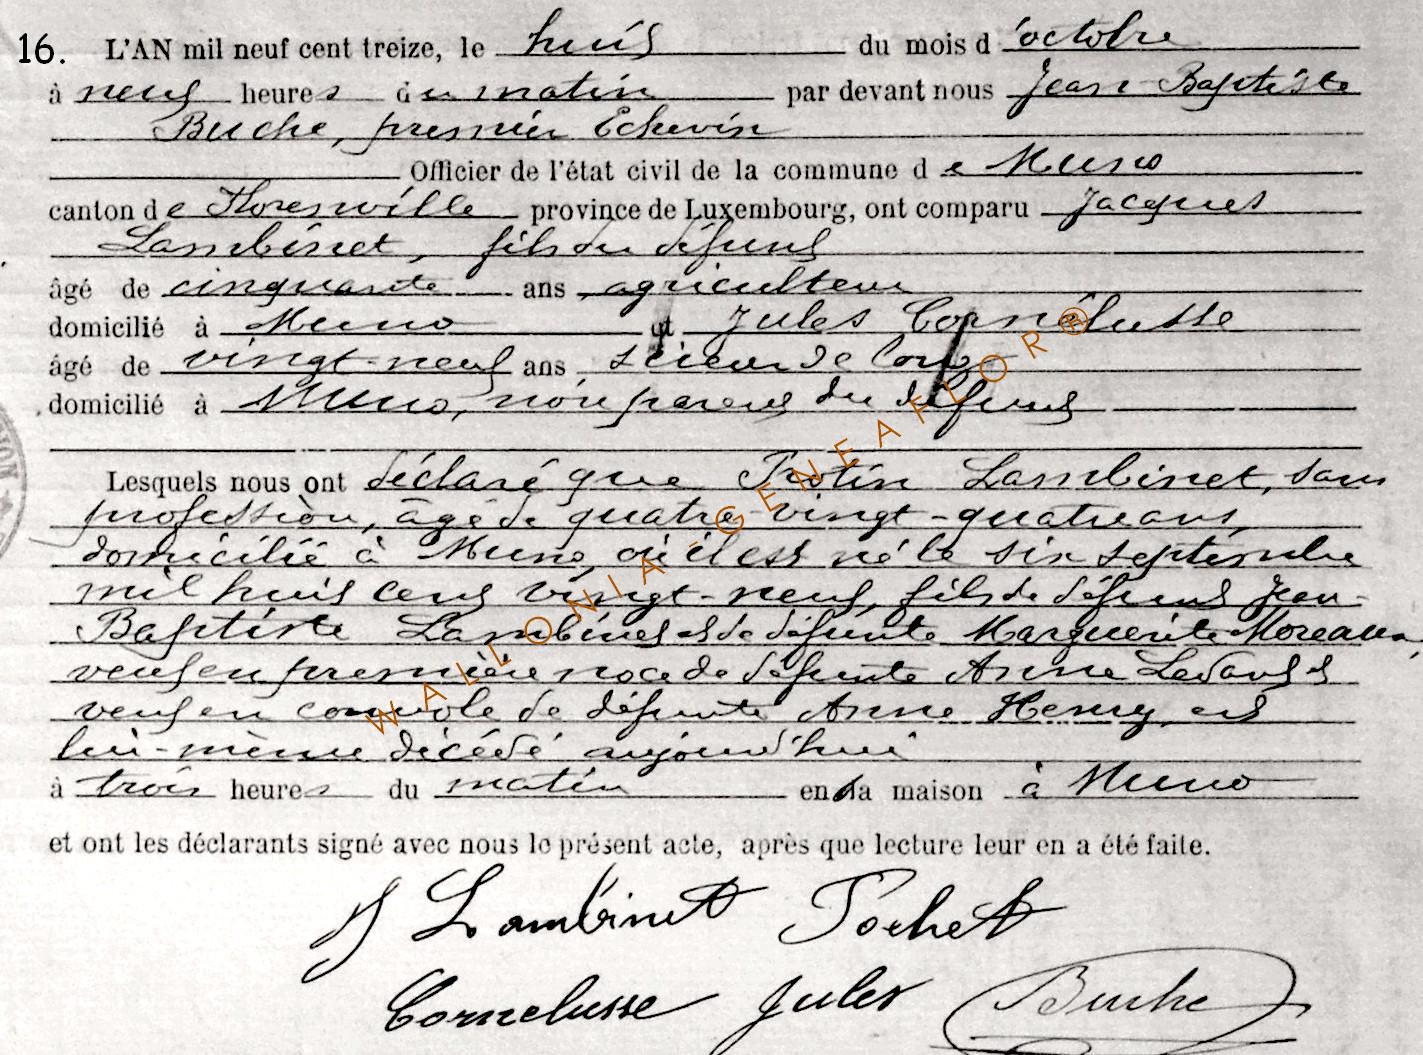 16. L'AN mil neuf cent treize, le huit du mois d'octobre
à neuf heures du matin par devant nous Jean-Baptiste
Buche, premier Echevin
Officier de l'état civil de la commune de Muno
canton de Florenville province de Luxembourg, ont comparu Jacques
Lambinet, fils du défunt
âgé de cinquante ans agriculteur
domicilié à Muno et Jules Cornélusse
âgé de vingt-neuf ans, scieur de long
domicilié à Muno, non parent du défunt
Lesquels nous ont déclaré que Protin Lambinet, sans
profession, âgé de quatre vingt-quatre ans,
domicilié à Muno, où il est né le six septembre
mil huit cent vingt-neuf, fils de défunt Jean-
Baptiste Lambinet et de défunte Marguerite Moreaux,
veuf en première noce de défunte Anne
veuf en de défunte Anne Henry, est
lui-même décédé aujourd'hui
à trois heures du matin en sa maison à Muno
et ont les déclarants signé avec nous le présent acte, après que lecture leur en a été faite.
J Lambinet Pochet
Cornelusse Jules Buche
WALLONIA - GENEAFLOR®